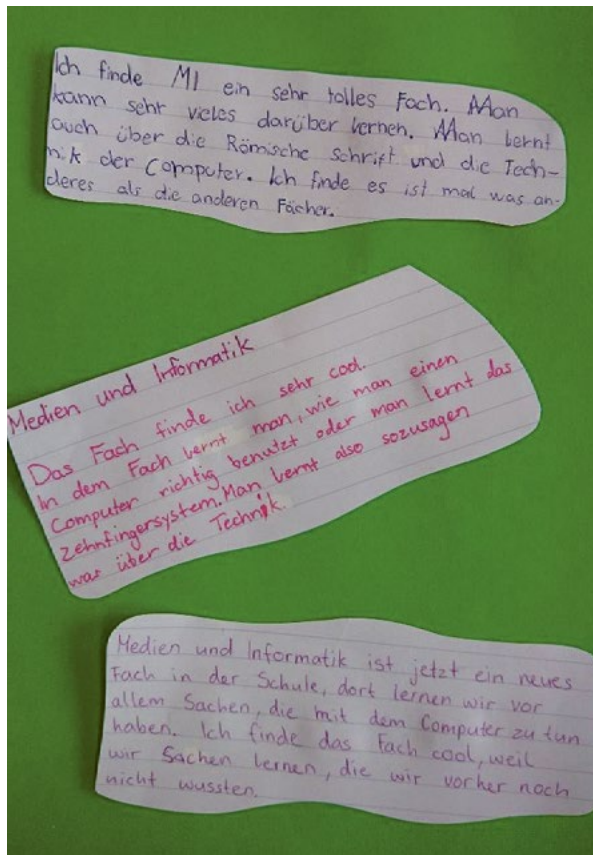 Ich finde MI ein sehr tolles Fach. Man
kann sehr vieles darüber lernen. Man lernt
auch über die Römische Schrift und die Tech-
nik der Computer. Ich finde es ist mal was an-
deres als die anderen Fächer.
Medien und Informatik
Das Fach finde ich sehr cool.
In dem Fach lernt man, wie man einen
Computer richtig benutzt oder man lernt das
Zehnfingersystem. Man lernt also sozusagen
was über die Technik.
Medien und Informatik ist jetzt ein neues
Fach in der Schule, dort lernen wir vor
allem Sachen, die mit dem Computer zu tun
haben. Ich finde das Fach cool, weil
wir Sachen lernen, die wir vorher noch
nicht wussten.